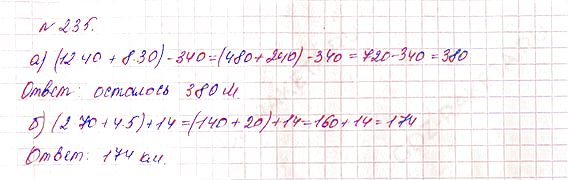 № 235.
а) (12 40 + 8·30) - 340 = (480 + 240) - 340 = 720 - 340 = 380
Ответ: осталось 380 м.
б) (2 70 + 4·5) + 14 = (140 + 20) + 14 = 160 + 14 = 174
Ответ: 174 км.